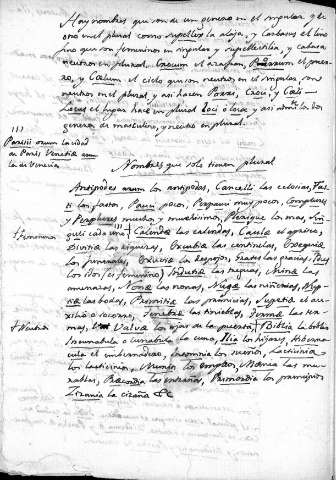 Hay nombres que son de un genero en el singular, y de
otro en el plural como supellex la alaja, y Carbasus el lino
fino que son femeninos en singular y supellectilia, y carbasa
neutros en plural. Crocum el azafran, Porrum el puerro,
y Coelum el cielo que son neutros en el singular son
neutros en el plural, y asi hacen Porri, Croci, y Coeli
Locus el lugar hace en plural Loci o loca, y asi admite los dos
generos de masculino, y neutro en plural.
Parisii orum la ciudad
de Paris Venetiae arum
la de Venecia
Nombres que solo tienen plural
Antipodes arum los antipodas, Cancelli las celosias, Fasti
los fastos, Pauci pocos, Perpauci muy pocos, Complures
y Perplures muchos, y muchisimos, Plerique los mas, Singuli
cada uno
† femeninos
Calendae las calendas, Caulae el aprisco,
Divitiae las riquezas, Excubiae las centinelas, Exequiae
los funerales, Exuviae los despojos, Grates las gracias, Idus
los idos (es femenino) Induciae las treguas, Minae las
amenazas, Nonae las nonas, Nugae las niñerias, Nuptiae
las bodas, Primitiae las primicias, Suppetiae el auxilio
o socorro, Tenebrae las tinieblas, Thermae las termas,
Valvae las ojas de la puerta,
† Neutros
Biblia la biblia
Incunabula o cunabula la cuna, Ilia los hijares, Hibernacula
el imbernadero, Insomnia los sueños, Lacticinia
los lacticinios, Munia los empleos, Moenia las murallas,
Praecordia las entrañas, Primordia los principios
Zizania la cizaña &c